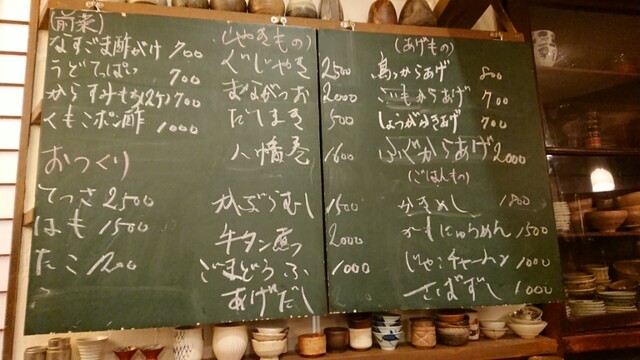 (前菜)
なすごま酢がけ 700
うどてっぱい 700
からすみもち(2ケ) 700
くもこポン酢 1000
おつくり
てっさ 2500
はも 1500
たこ 1200
(やきもの)
ぐじやき 2500
まながつお 2000
だしまき 500
八幡巻 1600
かぶらむし 1500
牛タン煮 2000
ごまどうふ 1000
あげだし
(あげもの)
鳥からあげ 800
いもからあげ 700
しょうがかきあげ 700
ふぐからあげ 2000
(ごはんもの)
かきめし 1800
かもにゅうめん 1500
じゃこチャーハン 1000
さばずし 1000